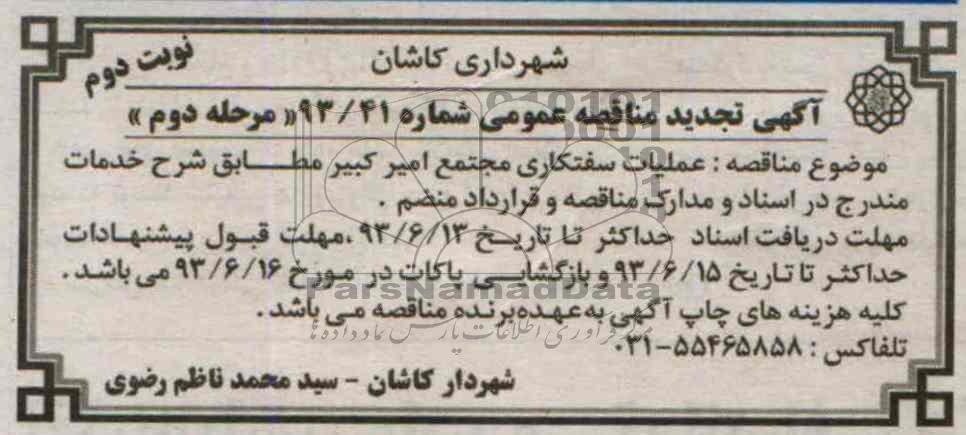 شهرداری کاشان
نوبت دوم
آگهی تجدید مناقصه عمومی شماره ۹۳/۴۱ « مرحله دوم »
موضوع مناقصه : عملیات سفتکاری مجتمع امیر کبیر مطابق شرح خدمات
مندرج در اسناد و مدارک مناقصه و قرارداد منضم .
مهلت دریافت اسناد حداکثر تا تاریخ ۹۳/۶/۱۳ ،مهلت قبول پیشنهادات
حداکثر تا تاریخ ۹۳/۶/۱۵ و بازگشایی پاکات در مورخ ۹۳/۶/۱۶ می باشد .
کلیه هزینه های چاپ آگهی به عهده برنده مناقصه می باشد .
تلفاکس : ۵۵۴۶۵۸۵۸-۰۳۱
شهردار کاشان - سید محمد ناظم رضوی
ParsNamadData
مرکز فرآوری اطلاعات پارس نماد داده ها